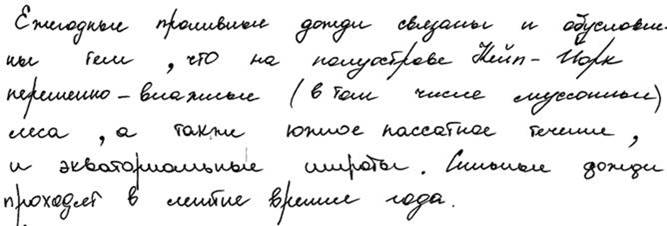 Ежегодные проливные дожди связаны и обусловле-
ны тем, что на полуострове Кейп-Йорк
переменно-влажные (в том числе муссонные)
леса, а также южное пассатное течение,
и экваториальные широты. Сильные дожди
проходят в летнее время года.